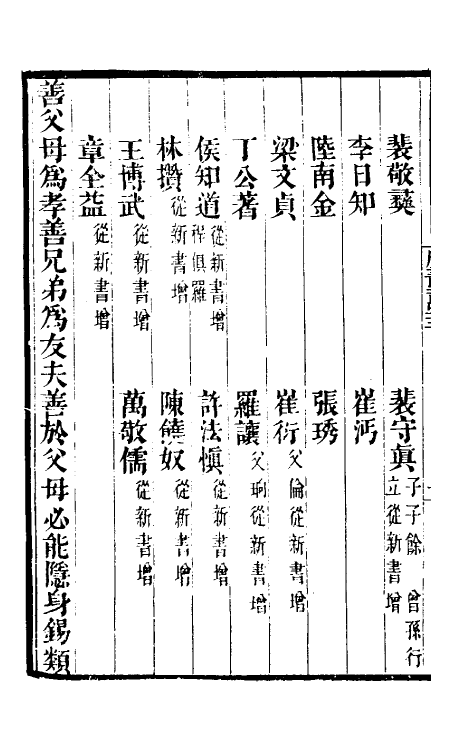 裴敬彝　裴守眞子子餘　曾孫行立從新書增
李日知　崔沔
陸南金　張琇
梁文貞　崔衍父倫從新書增
丁公著　羅讓父珦從新書增
侯知道從新書增程俱羅　許法愼從新書增
林攢從新書增　陳饒奴從新書增
王博武從新書增　萬敬儒從新書增
章全益從新書增
善父母爲孝善兄弟爲友夫善於父母必能隱身錫類